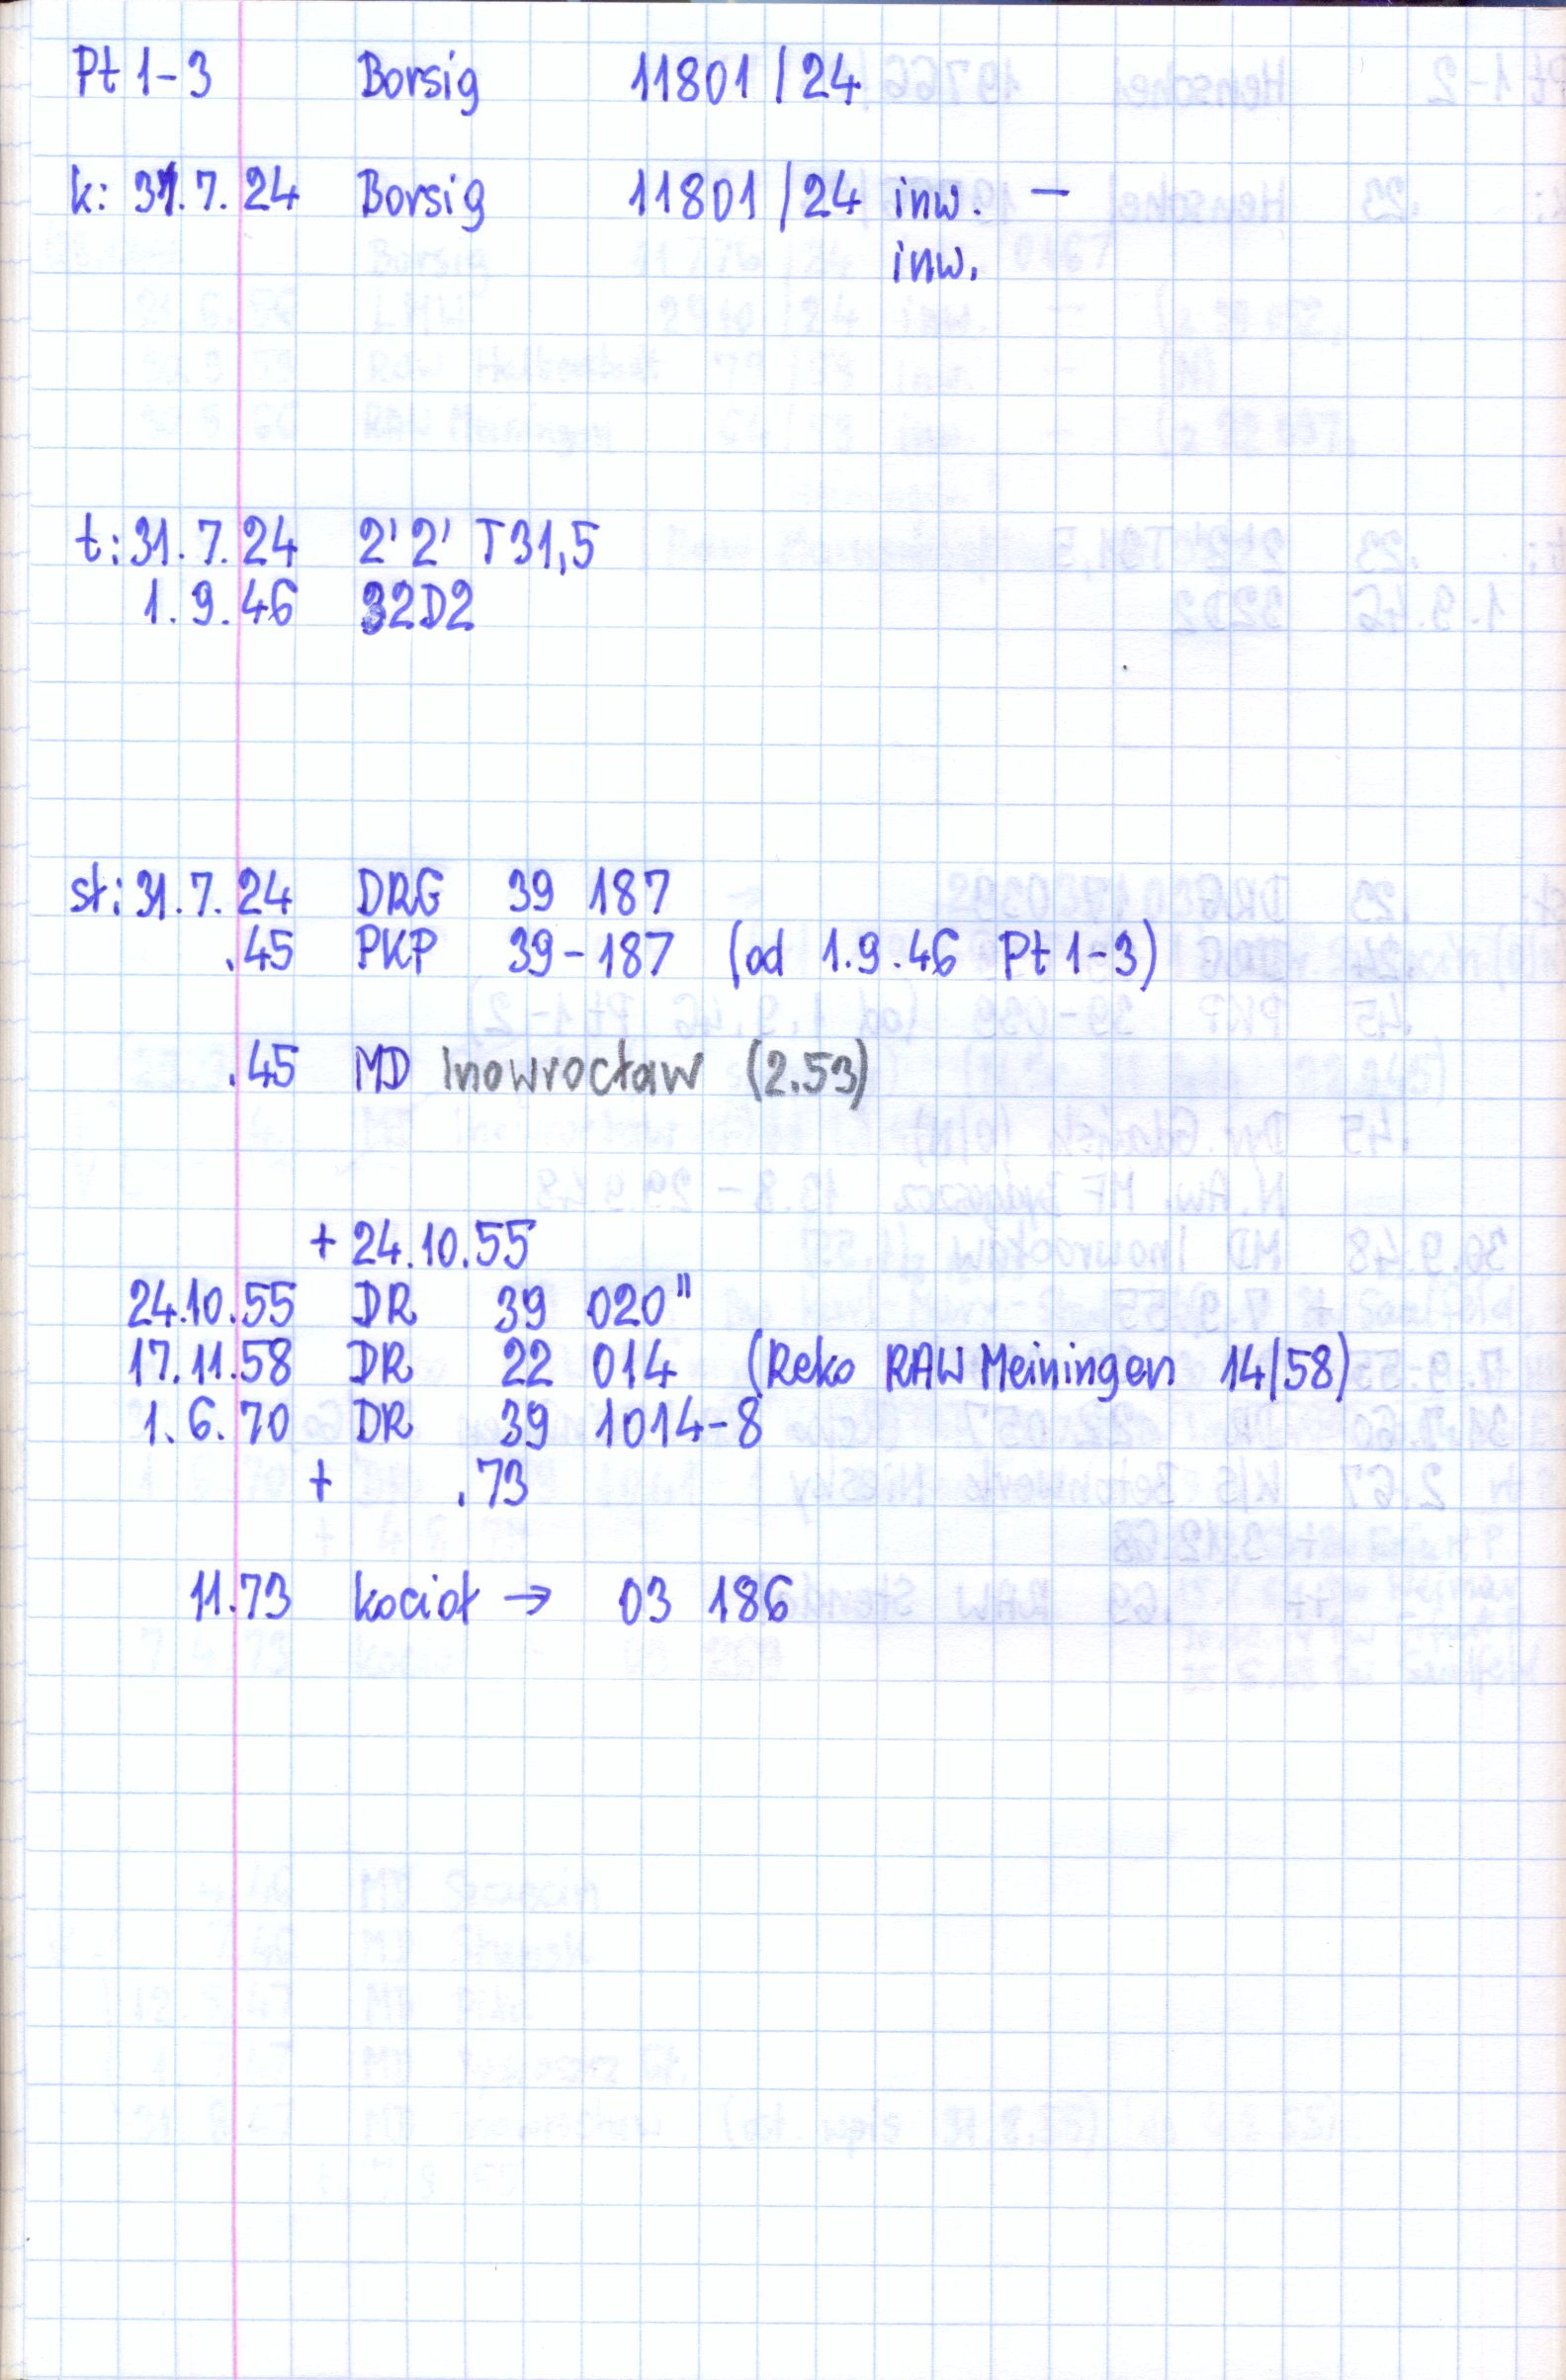 Pt 1-3 Borsig 11801/24
k: 31.7.24 Borsig 11801/24 inw. —
inw.
t: 31.7.24 2'2' T31,5
1.9.46 32D2
st: 31.7.24 DRG 39 187
.45 PKP 39-187 (od 1.9.46 Pt 1-3)
.45 MD Inowrocław (2.53)
+ 24.10.55
24.10.55 DR 39 020"
17.11.58 DR 22 014 (Reko RAW Meiningen 14/58)
1.6.70 DR 39 1014-8
+ .73
11.73 kocioł → 03 186